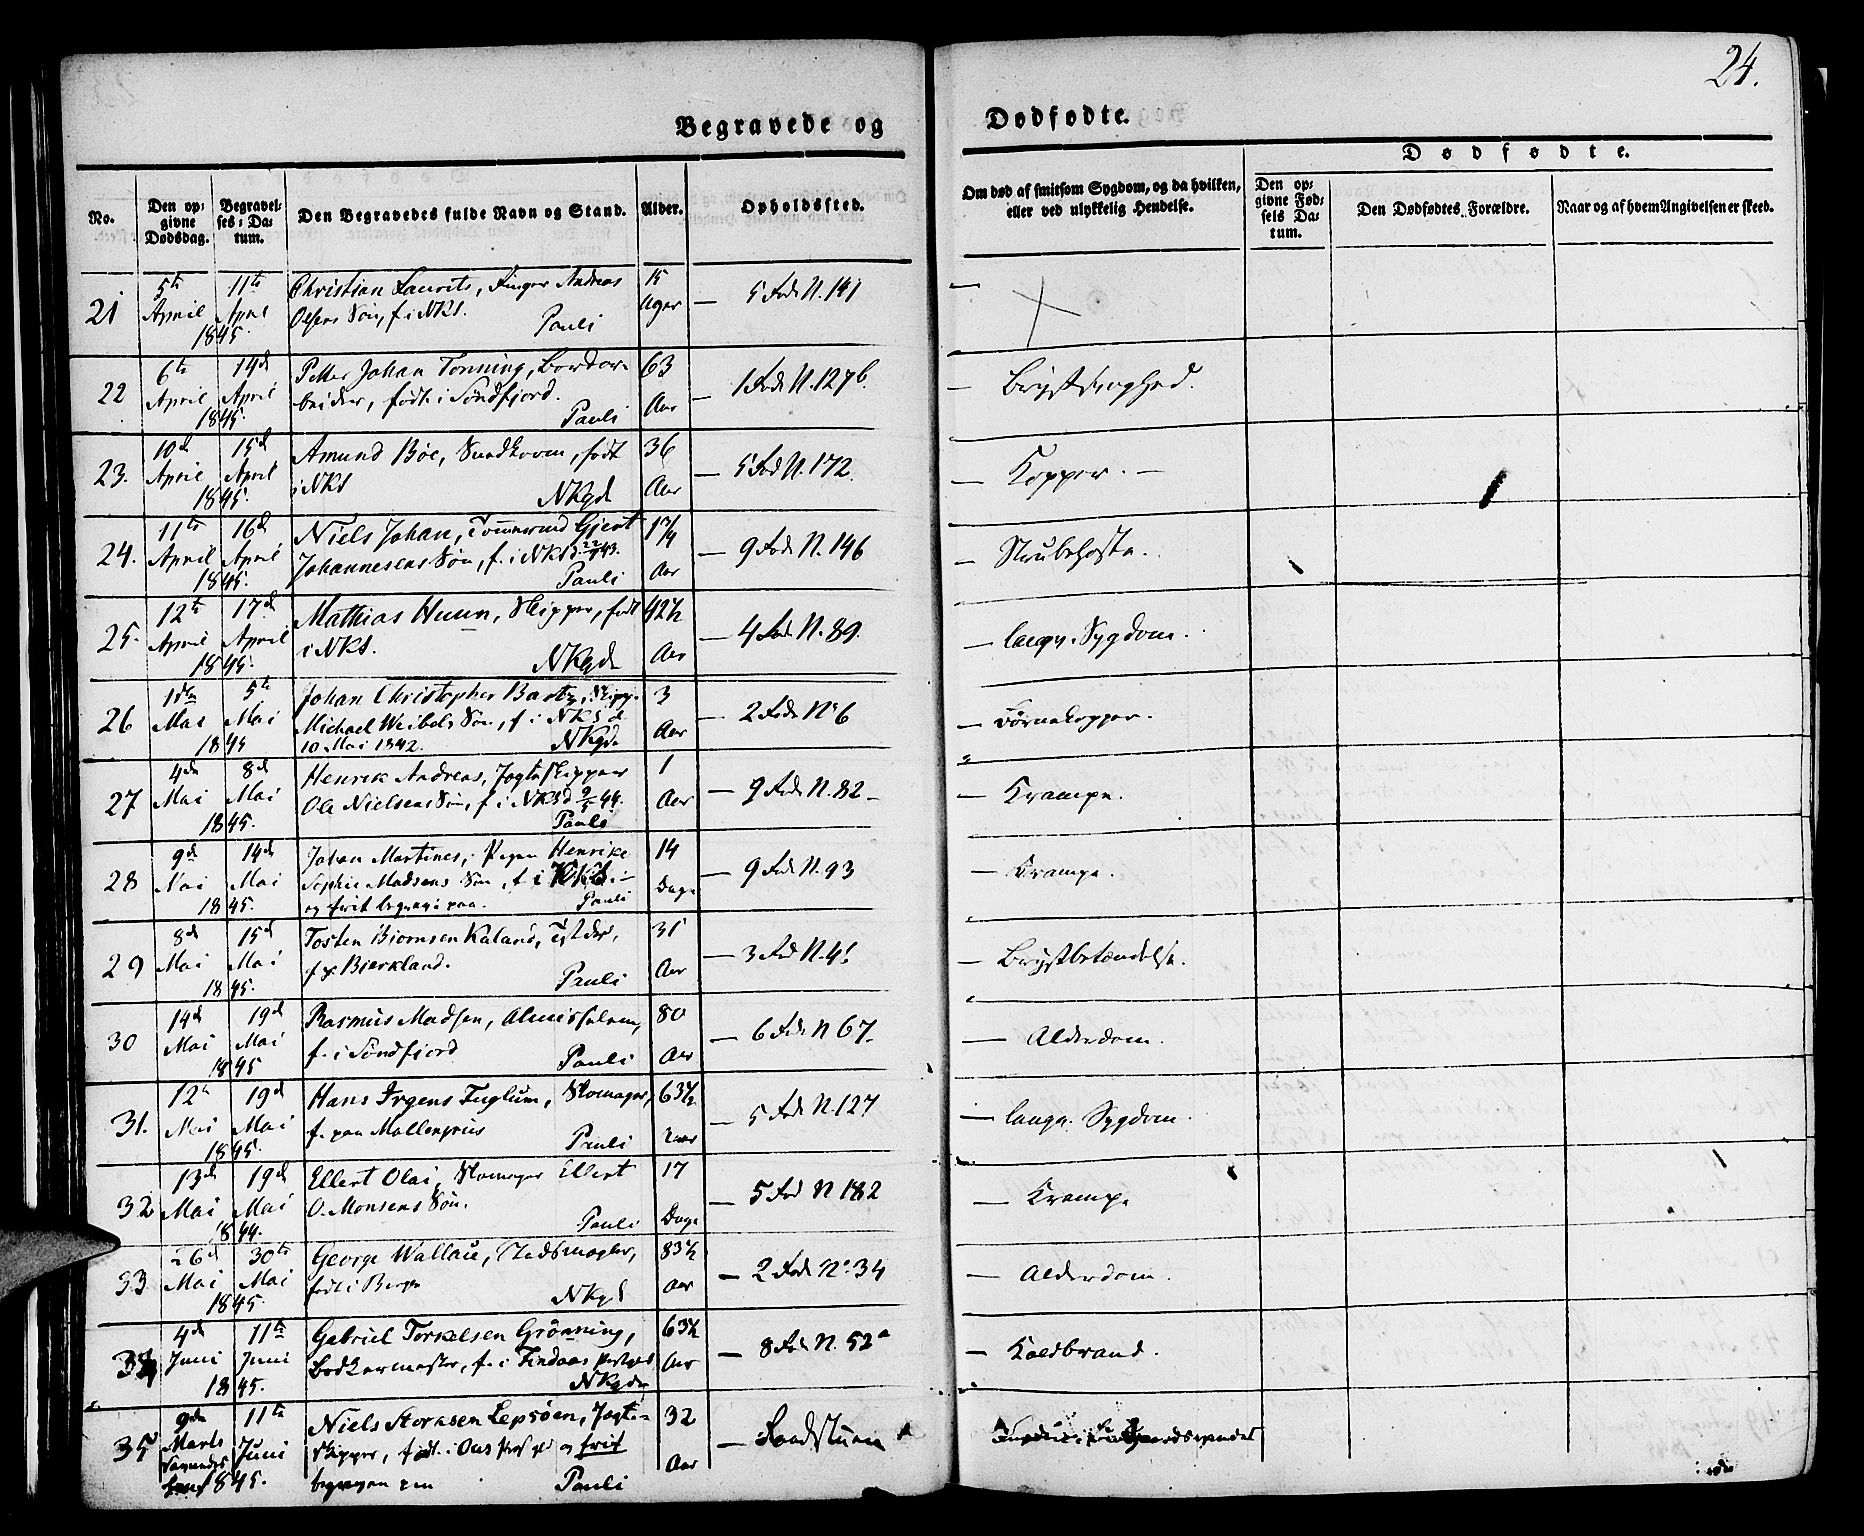 24.
Begravede og Dødfødte.
Dødfødte.
No.
Den opgivne Dødsdag.
Begravelses-Datum.
Den Begravedes fulde Navn og Stand.
Alder.
Opholdssted.
Om død af smitsom Sygdom, og da hvilken, eller ved ulykkelig Hendelse.
Den opgivne Fødsels Datum.
Den Dødfødtes Forældre.
Naar og af hvem Angivelsen er skeed.
21 5te April 11te April 1845. Christian Laurits, Andreas 15 Uger — 5 Rode N. 141 —
Olsens Søn, f. i NKs. Pauli
22 6te April 14de April 1845. Petter Johan Tonning, 63 Aar — 1 Rode N. 127b. — Brystsvaghed.
født i Søndfjord. Pauli
23. 10de April 15de April 1845. Amund Bøe, født 36 Aar — 5 Rode N. 172. — Kopper. —
i NKs NKgd
24. 11te April 16de April 1845. Niels Johan, Tømmermand Gjert 1 3/4 Aar — 9 Rode N. 146 — Strubehoste.
Johannesens Søn, f. i NKs d. Pauli
25. 12te April 17de April 1845. Mathias Huun, Skipper, født 42½ Aar — 4 Rode N. 89. — langv. Sygdom.
i NKs. NKgd
26 1ste Mai 5te Mai 1845 Johan Christopher Skipp. 3 Aar — 2 Rode No 6 — Børnekopper.
Michael Søn, f. i NKs d.
10 Mai 1842. NKgd.
27 4de Mai 8de Mai 1845. Henrik Andreas, Jagteskipper 1 Aar — 9 Rode N. 82 — — Krampe.
Ole Nielsens Søn, f. i NKs d 9/5 44.
Pauli
28 9de Mai 14de Mai 1845. Johan Martines, Pigen Henrike 14 Dage — 9 Rode N. 93 — Krampe.
Sophie Madsens Søn, f. i
og frit begravet paa. Pauli
29 8de Mai 15de Mai 1845. Tosten Biørnsen Kaland, 31 Aar — 3 Rode N. 4 — Brystbetændelse.
Bierkland. Pauli
30 14de Mai 19de Mai 1845 Rasmus Madsen, Almisselem, 80 Aar — 6 Rode N 67. — Alderdom.
f. i Søndfjord Pauli
31. 12te Mai 19de Mai 1845. Hans Irgens Fuglum, Skomager, 63½ Aar — 5 Rode N. 127 — langv. Sygdom.
f. paa Møllenpriis Pauli
32 13de Mai 19de Mai 1844. Ellert Olai, Skomager Ellert 17 Dage — 5 Rode N 182 — Krampe
O. Monsens Søn. Pauli
33 26de Mai 30te Mai 1845. George Wallace, 83½ Aar — 2 Rode No. 34 — Alderdom.
født i Bergen NKgd
34 4de Juni 11te Juni 1845. Gabriel Torkelsen Grønning, 63½ Aar — 8 Rode N. 52a — Koldbrand.
Bødkermester, f. i Findaas
NKgd
35 9de Marts 11te Juni 1845. Niels Storksen Lepsøen, Jagte- 32 Aar — Sandstuen
skipper, født i Oos og frit
begraven paa Pauli